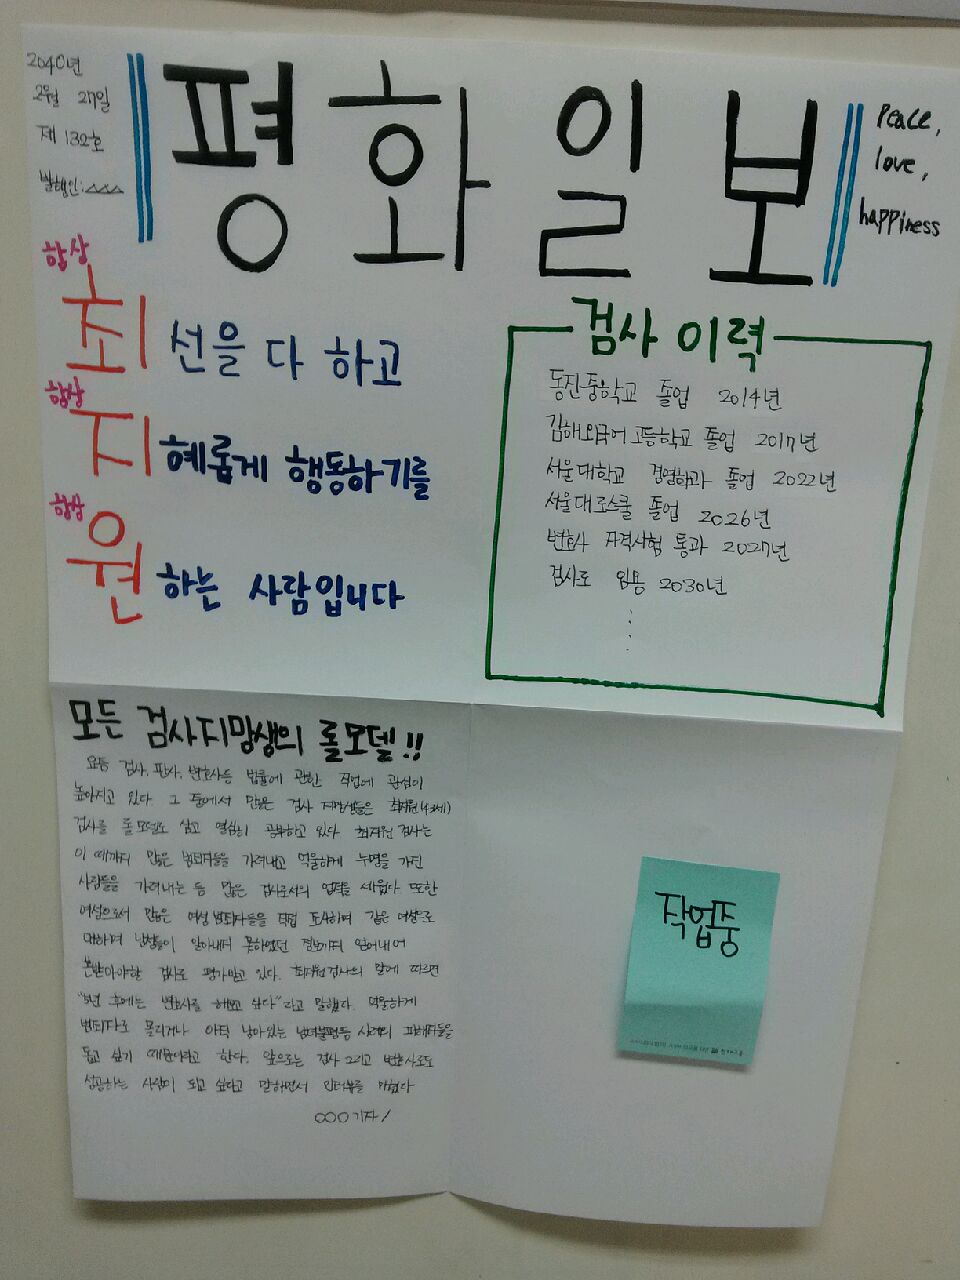 2040년
2월 27일
제 132호
발행인:△△△
평화일보
Peace,
love,
happiness
항상
최선을 다 하고
항상
지혜롭게 행동하기를
항상
원하는 사람입니다
검사 이력
동진중학교 졸업 2014년
김해외국어고등학교 졸업 2017년
서울대학교 경영학과 졸업 2022년
서울대로스쿨 졸업 2026년
변호사 자격시험 통과 2027년
검사로 임용 2030년
모든 검사지망생의 롤모델!!
요즘 검사, 판사, 변호사등 법률에 관한 직업에 관심이
높아지고 있다. 그 중에서 많은 검사 지망생들은 최지원(43세)
검사를 롤모델로 삼고 열심히 공부하고 있다. 최지원 검사는
이 때까지 많은 범죄자들을 가려내고 억울하게 누명을 가진
사람들을 가려내는 등 많은 검사로서의 업적을 세웠다. 또한
여성으로서 많은 여성 범죄자들을 직접 조사하며 같은 여성으로
대하며 남성들이 알아내지 못하였던 정보까지 얻어내어
본받아야할 검사로 평가받고 있다. 최지원검사의 말에 따르면
후에는 변호사를 해보고 싶다"라고 말했다. 억울하게
범죄자로 몰리거나 아직 남아있는 남녀불평등 사례의 피해자들을
돕고 싶기 때문이라고 한다. 앞으로는 검사 그리고 변호사로도
성공하는 사람이 되고 싶다고 말하면서 인터뷰를 마쳤다
○○○기자/
작업중